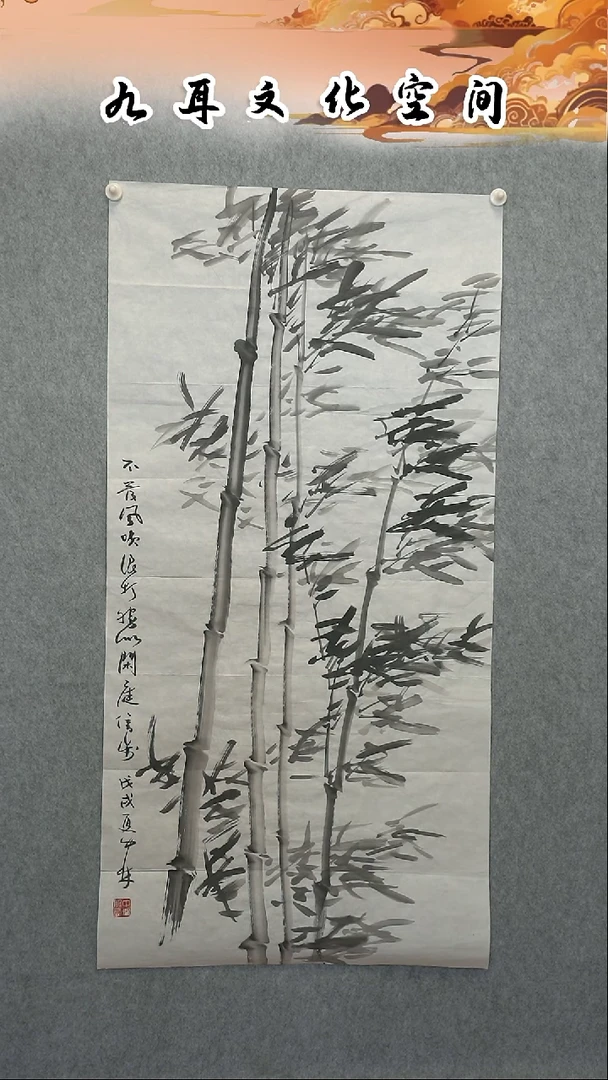 九耳文化空间
不管风吹浪打 胜似閒庭信步 戊戌夏